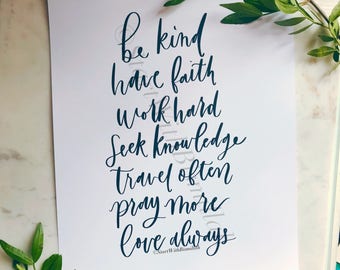 be kind
have faith
work hard
seek knowledge
travel often
pray more
love always